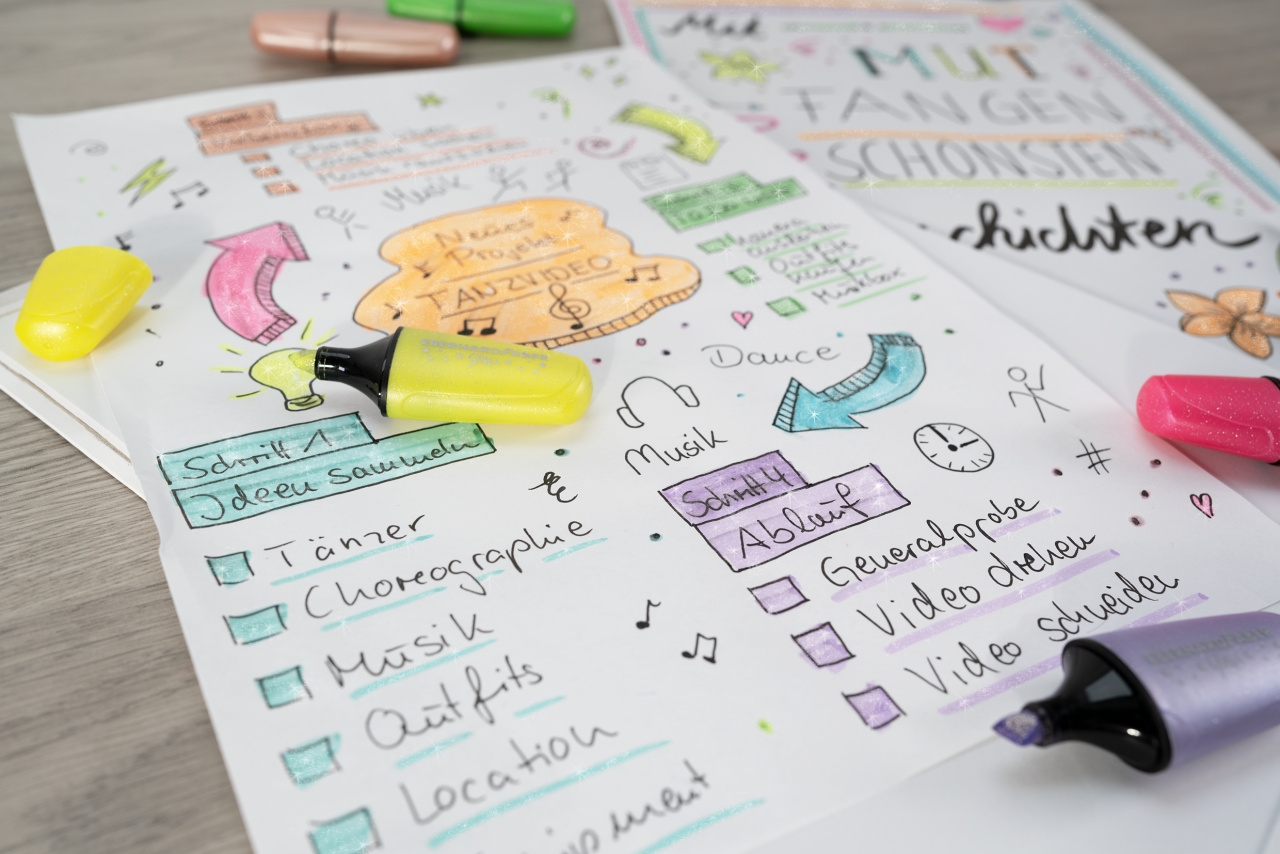 Mut
MUT
FANGEN
SCHÖNSTEN
chichten
Musik
Neues
Projekt
TANZVIDEO
Outfits
kaufen
Musikbox
Dance
Musik
Schritt 1
Ideen sammeln
Tänzer
Choreographie
Musik
Outfits
Location
ipment
Schritt 4
Ablauf
Generalprobe
Video drehen
Video schneiden
#